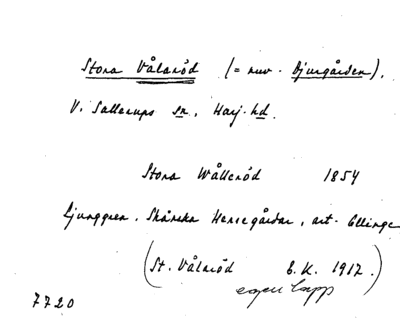 Stora Vålaröd (= nuv. Djurgården).
V. Sallerups sn, Harj. hd.
Stora Wålleröd 1854
Ljunggren. Skånska Herregårdar, art. Ellinge
(St. Vålaröd E.K. 1917.)
egen lapp
7720